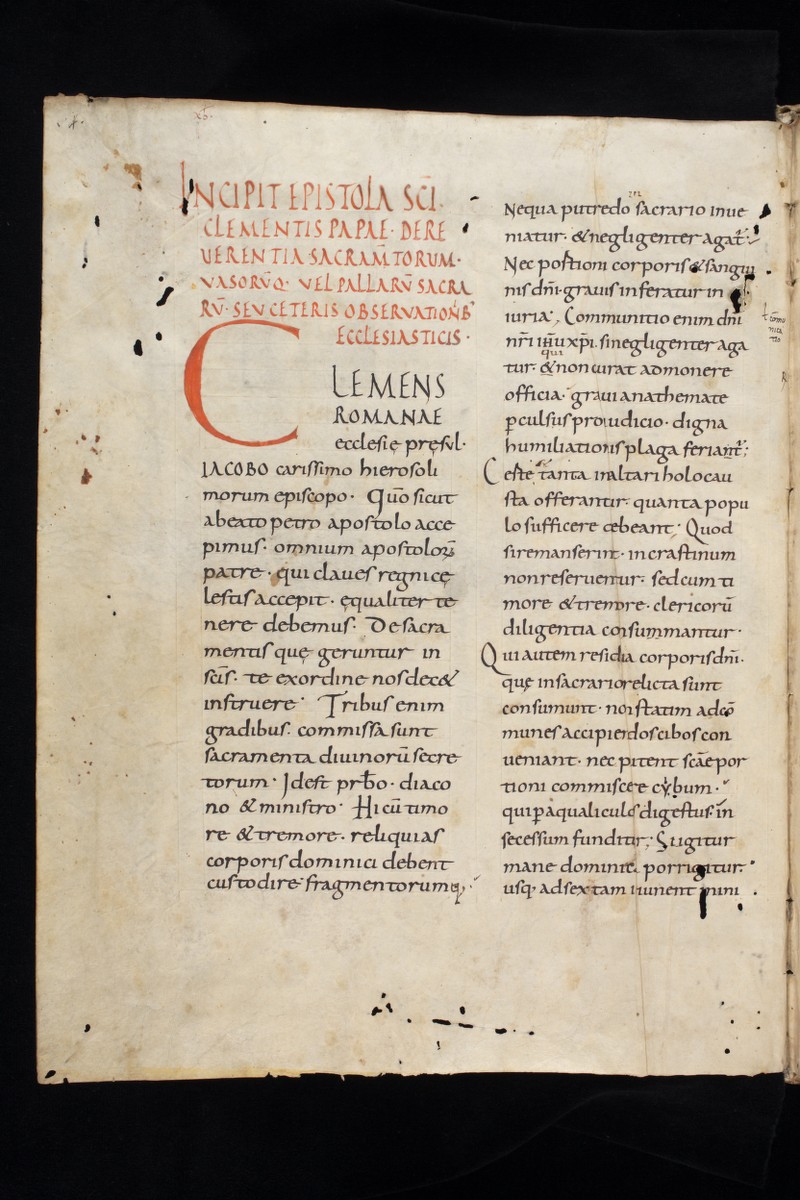 INCIPIT EPISTOLA SCĪ·
CLEMENTIS PAPAE· DE RE
UERENTIA SACRAM̄TORUM·
VASORV̄Q· VEL PALLARV̄ SACRA
RV̄· SEV CETERIS OBSERVATION̄B'
ECCLESIASTICIS·
CLEMENS
ROMANAE
ecclesię pręsul·
IACOBO carissimo hierosoli
morum episcopo· Quō sicut
a beato petro apostolo acce
pimus· omnium apostolorū
patre· qui claues regni cę
lestis accepit· ęqualiter te
nere debemus· De sacra
mentis quę geruntur in
scīs· te ex ordine nos dec&
instruere· Tribus enim
gradibus· commissa sunt
sacramenta diuinorū secre
torum· Idest prb̄o· diaco
no & ministro· Hi cū timo
re & tremore· reliquias
corporis dominici debent
custodire fragmentorumq;
Nequa putredo sacrario inue
niatur· & negligenter agat̄·
Nec postioni corporis & sangui
nis dn̄i· grauis inferatur in
iuria·, Communitio enim dn̄i
nr̄i ih̄u xp̄i· si negligenter aga
qui
tur· & non curat admonere
officia· graui anathemate
ꝑculsus pro iudicio· digna
humiliationis plaga feriant̄;
Certe tanta in altari holocau
sta offerantur· quanta popu
lo sufficere debeant· Quod
si remanserint· in crastinum
non reseruentur· sed cum ti
more & tremore· clericorū
diligentia consummantur·
Qui autem residia corporis dn̄i·
quę in sacrario relicta sunt
consumunt· non statim ad cō
munes accipiendos cibos con
ueniant· nec putent scāe por
tioni commiscere cybum·
qui p aqualiculos digestus in
secessum funditur; Si igitur
mane dominica porrigitur·
usq· ad sextam iiunent mini